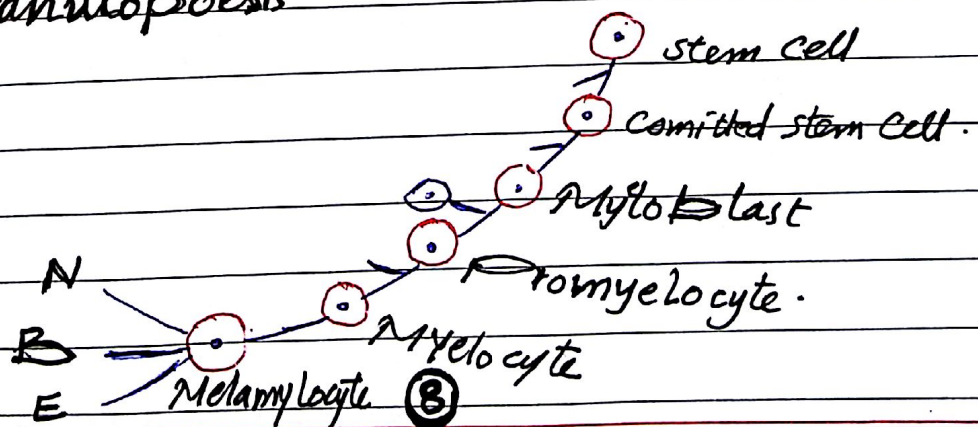 anulopoesis
stem cell
comitted stem cell.
Myloblast
Promyelocyte.
N
Myelocyte
B
Melamylocyte 8
E